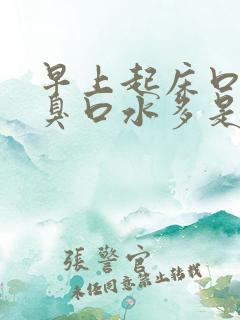 早上起床口
臭口水多是
張警官
未经同意禁止转载